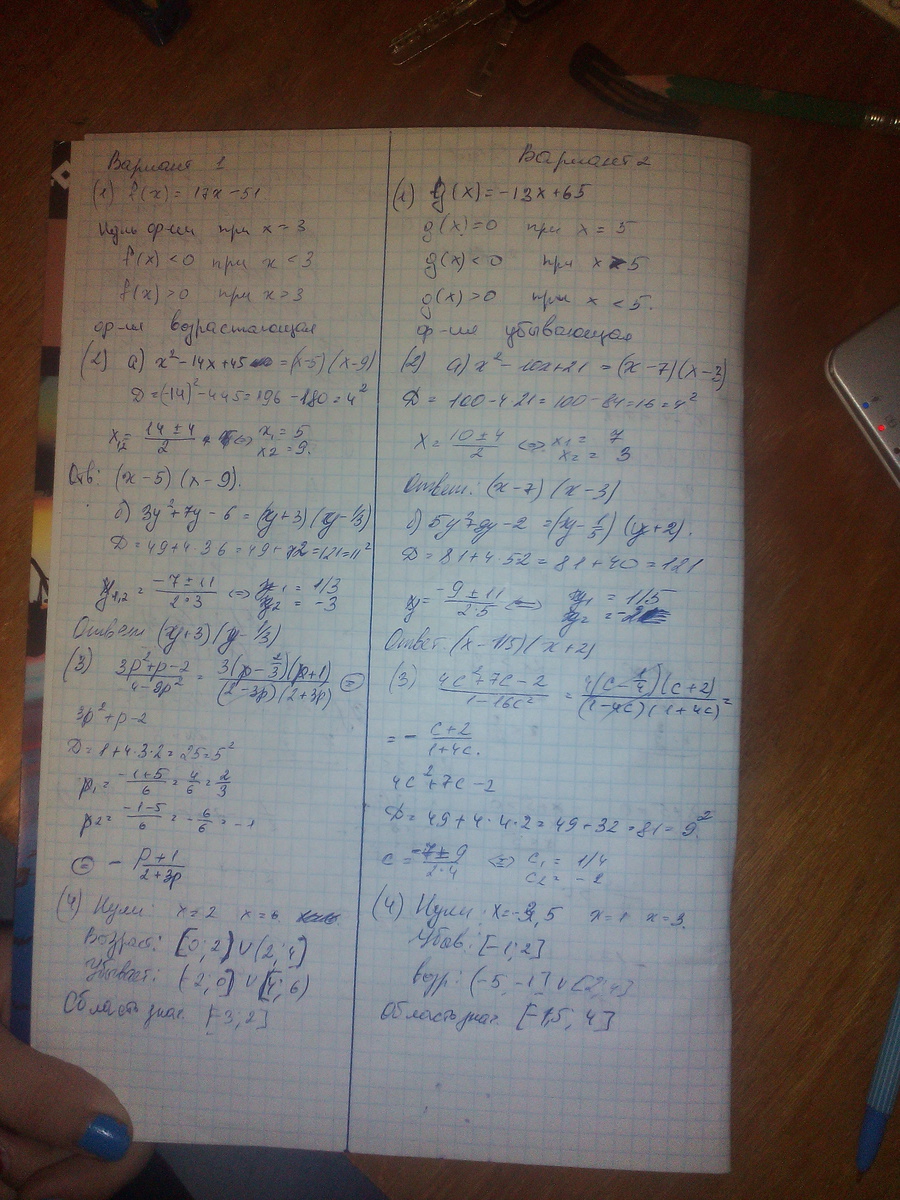 Вариант 1
(1) f(x) = 17x-51
Нуль ф-ии при x = 3
f(x) < 0 при x < 3
f(x) > 0 при x > 3
ф-ия возрастающая
(2) а) x²-14x+45 = (x-5)(x-9)
D = (-14)²-4·45 = 196-180 = 4²
x₁,₂ = (14±4)/2 ⇔ x₁ = 5
x₂ = 9.
Отв: (x-5)(x-9).
б) 3y²+7y-6 = (y+3)(y-1/3)
D = 49+4·3·6 = 49+72 = 121 = 11²
y₁,₂ = (-7±11)/(2·3) ⇔ y₁ = 1/3
y₂ = -3
Ответ (y+3)(y-1/3)
(3) (3p²+p-2)/(4-9p²) = 3(p-2/3)(p+1)/((2-3p)(2+3p)) =
3p²+p-2
D = 1+4·3·2 = 25 = 5²
p₁ = (-1+5)/6 = 4/6 = 2/3
p₂ = (-1-5)/6 = -6/6 = -1
= - (p+1)/(2+3p)
(4) Нули: x = 2 x = 6
Возраст: [0; 2) ∪ (2; 4]
Убывает: (-2; 0] ∪ [4; 6)
Область знач. [-3; 2]
Вариант 2
(1) g(x) = -13x+65
g(x) = 0 при x = 5
g(x) < 0 при x > 5
g(x) > 0 при x < 5.
ф-ия убывающая
(2) а) x²-10x+21 = (x-7)(x-3)
D = 100-4·21 = 100-84 = 16 = 4²
x = (10±4)/2 ⇔ x₁ = 7
x₂ = 3
Ответ: (x-7)(x-3)
б) 5y²+9y-2 = (y-1/5)(y+2).
D = 81+4·5·2 = 81+40 = 121
y = (-9±11)/(2·5) ⇔ y₁ = 1/5
y₂ = -2
Ответ (x-1/5)(x+2)
(3) (4c²+7c-2)/(1-16c²) = 4(c-1/4)(c+2)/((1-4c)(1+4c)) =
= - (c+2)/(1+4c).
4c²+7c-2
D = 49+4·4·2 = 49+32 = 81 = 9²
c = (-7±9)/(2·4) ⇔ c₁ = 1/4
c₂ = -2
(4) Нули: x = 1 x = 3
Убыв: [-1; 2]
возр: (-5, -1] ∪ [2; 4]
Область знач. [-1,5; 4]